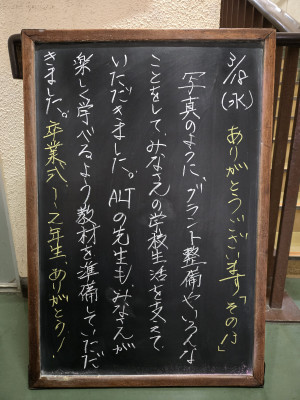 3/18(水)
ありがとうございます「その13」
写真のように、プラント整備やいろんな
ことをして、みなさんの学校生活を支えて
いただきました。ALTの先生も、みなさんが
楽しく学べるよう教材を準備していただ
きました。卒業式、1~2年生、ありがとう!